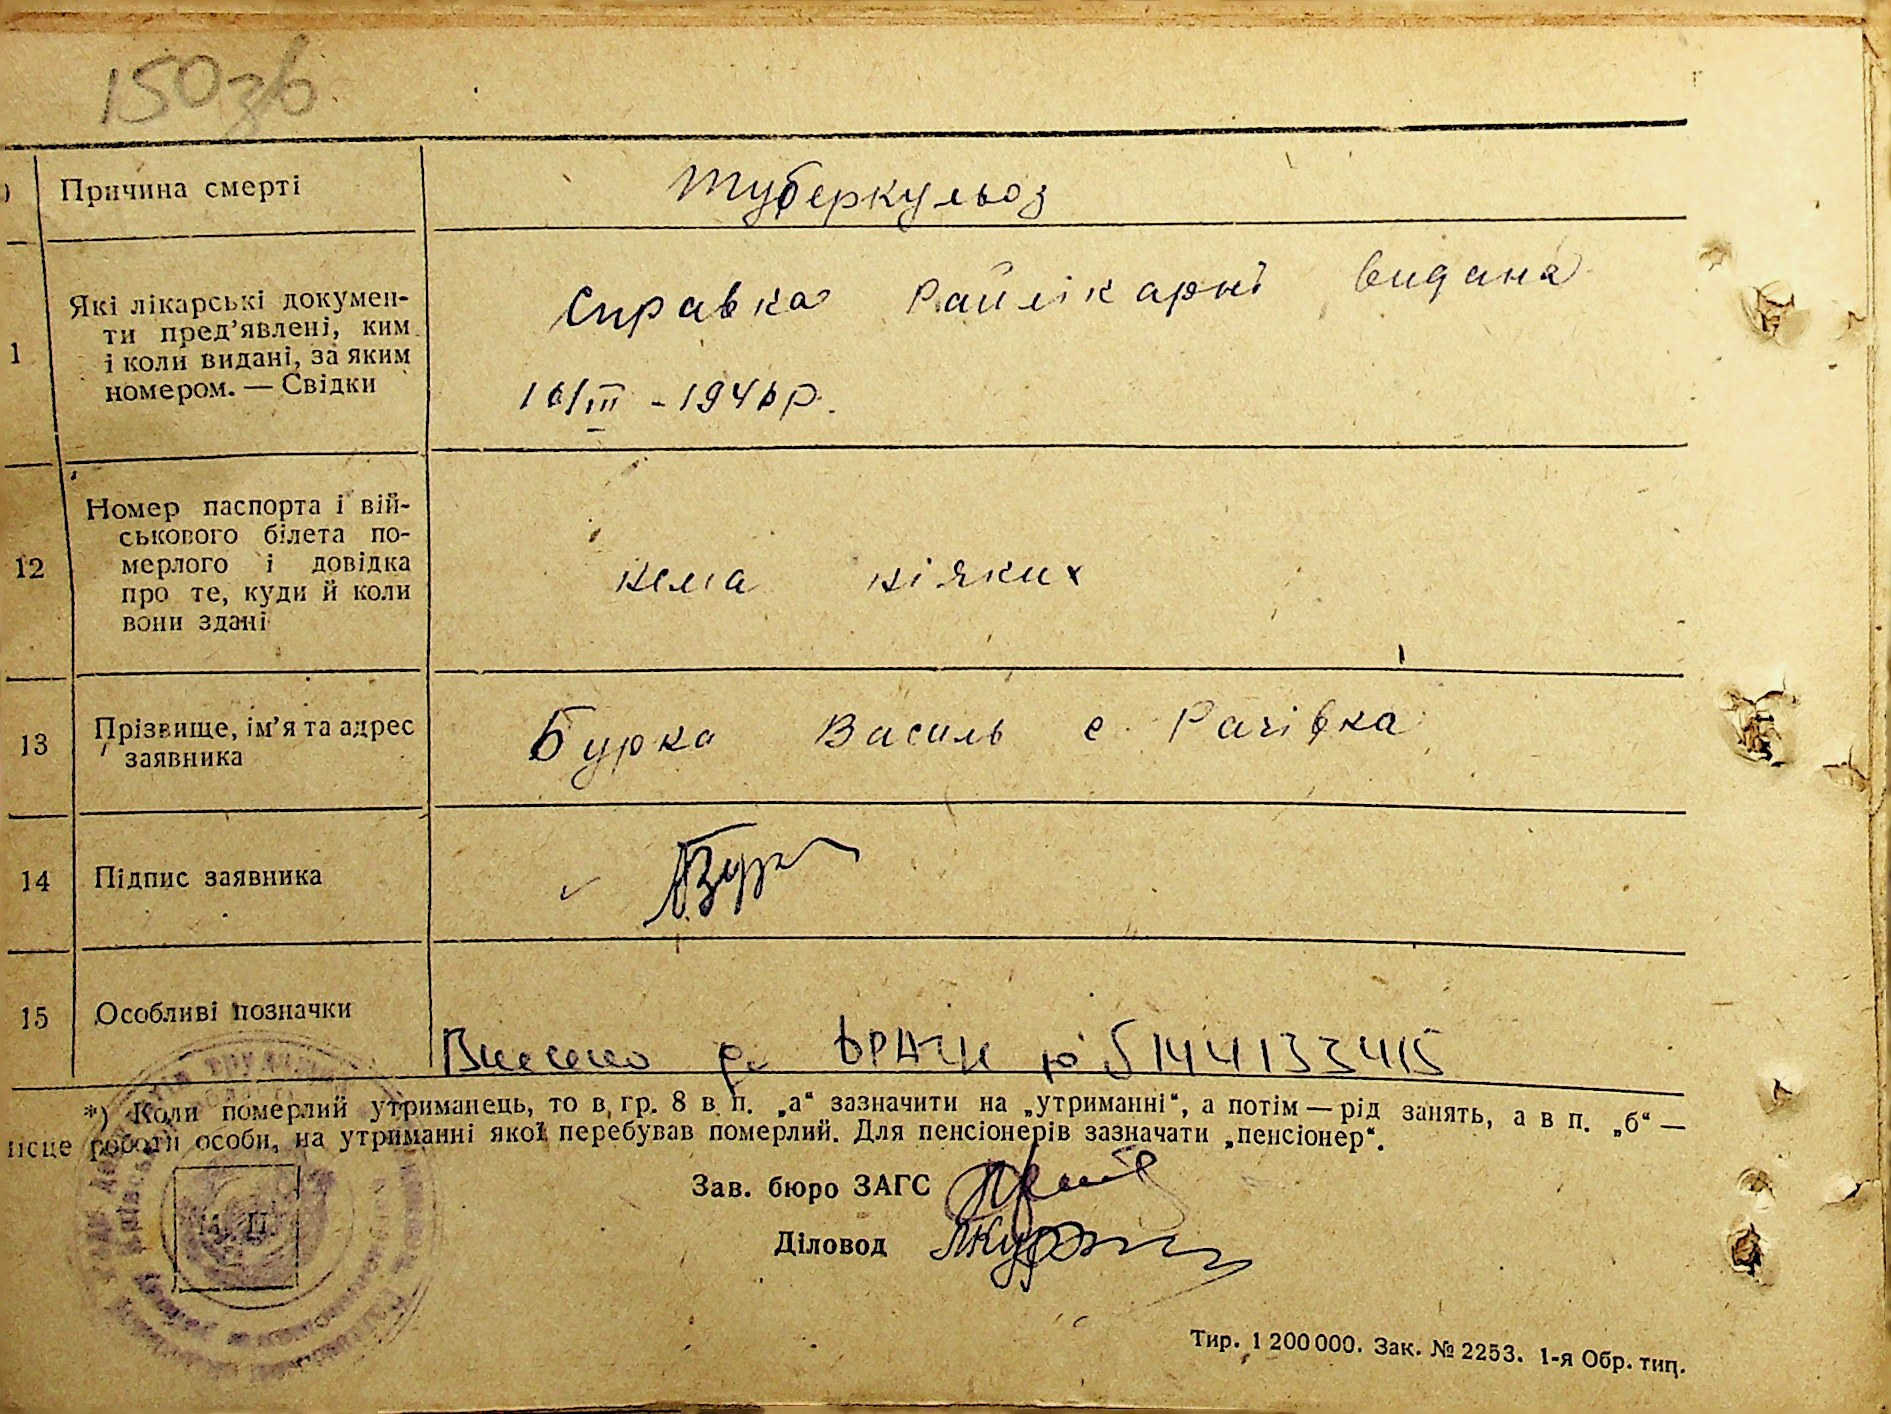 150 зв
Причина смерті
туберкульоз
1
Які лікарські докумен-
ти пред’явлені, ким
і коли видані, за яким
номером. — Свідки
Справка Райлікарні видана
16/III - 1946 р.
12
Номер паспорта і вій-
ськового білета по-
мерлого і довідка
про те, куди й коли
вони здані
нема ніяких
13
Прізвище, ім’я та адрес
заявника
Бурка Василь с. Рачівка
14
Підпис заявника
15
Особливі позначки
Внесено до ДРАЦС 5144133415
*) Коли померлий утриманець, то в гр. 8 в п. „а“ зазначити на „утриманні“, а потім — рід занять, а в п. „б“ —
місце роботи особи, на утриманні якої перебував померлий. Для пенсіонерів зазначати „пенсіонер“.
Зав. бюро ЗАГС
Діловод
Тир. 1 200 000. Зак. № 2253. 1-я Обр. тип.